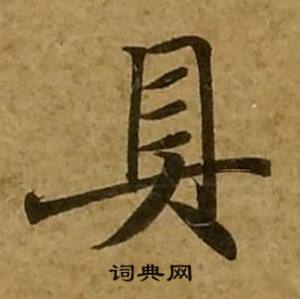 具
词典网